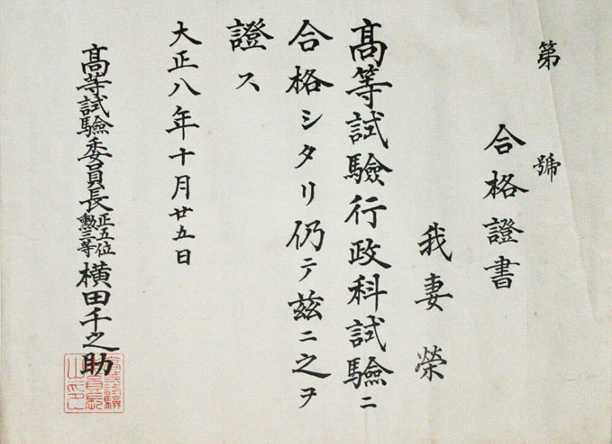 第　號
合格證書
我妻榮
高等試驗行政科試驗ニ
合格シタリ仍テ茲ニ之ヲ
證ス
大正八年十月廿五日
高等試驗委員長正五位勲三等横田千之助